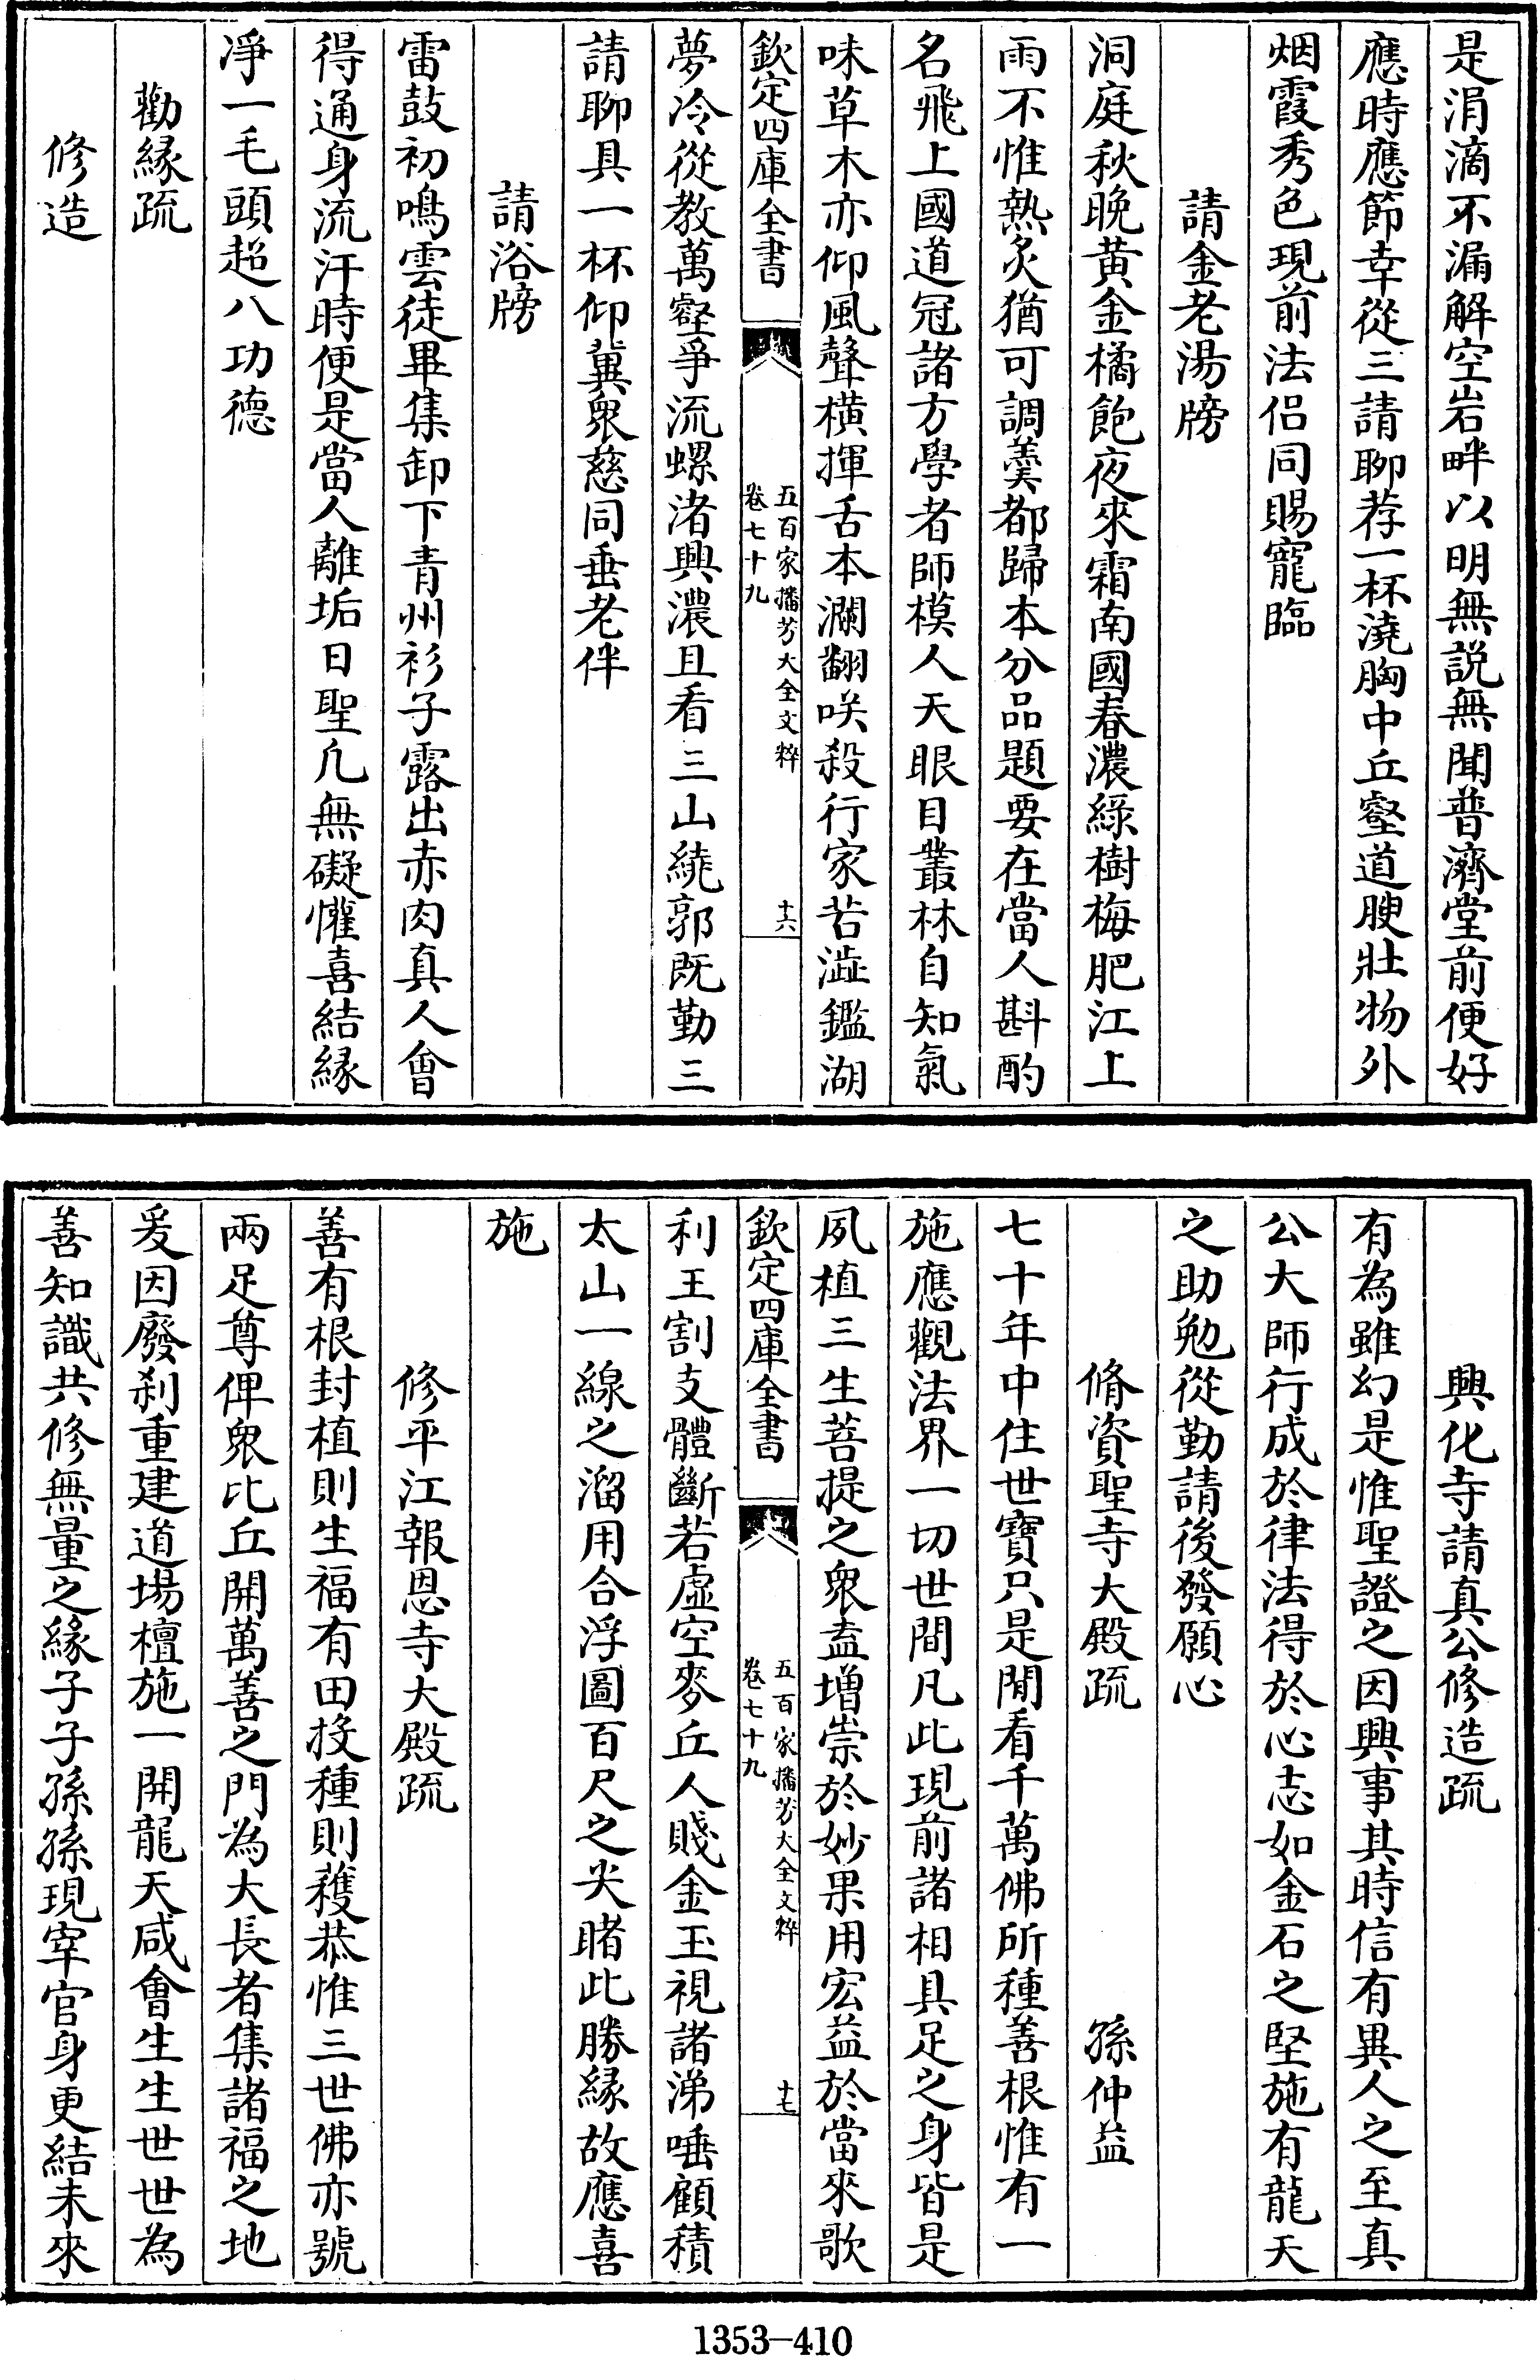 是涓滴不漏解空岩畔以明無説無聞普濟堂前便好
應時應節幸從三請聊荐一杯澆胸中丘壑道腴壯物外
烟霞秀色現前法侣同賜寵臨
請金老湯牓
洞庭秋晚黄金橘飽夜來霜南國春濃綠樹梅肥江上
雨不惟熱炙猶可調羹都歸本分品題要在當人斟酌
名飛上國道冠諸方學者師模人天眼目叢林自知氣
味草木亦仰風聲横揮舌本瀾翻咲殺行家苦澁鑑湖
欽定四庫全書
五百家播芳大全文粹
卷七十九
十六
夢冷從教萬壑爭流螺渚興濃且看三山繞郭既勤三
請聊具一杯仰冀衆慈同垂老伴
請浴牓
雷鼓初鳴雲徒畢集卸下青州衫子露出赤肉真人會
得通身流汗時便是當人離垢日聖凡無礙懽喜結縁
凈一毛頭超八功德
勸縁疏
修造
興化寺請真公修造疏
有為雖幻是惟聖證之因興事其時信有異人之至真
公大師行成於律法得於心志如金石之堅施有龍天
之助勉從勤請後發願心
脩資聖寺大殿疏 孫仲益
七十年中住世寶只是閒看千萬佛所種善根惟有一
施應觀法界一切世間凡此現前諸相具足之身皆是
夙植三生菩提之衆盍增崇於妙果用宏益於當來歌
欽定四庫全書
五百家播芳大全文粹
卷七十九
十七
利王割支體斷若虚空麥丘人賤金玉視諸涕唾顧積
太山一線之溜用合浮圖百尺之尖睹此勝縁故應喜
施
修平江報恩寺大殿疏
善有根封植則生福有田投種則穫恭惟三世佛亦號
兩足尊俾衆比丘開萬善之門為大長者集諸福之地
爰因廢刹重建道場檀施一開龍天咸會生生世世為
善知識共修無量之緣子子孫孫現宰官身更結未來
1353-410